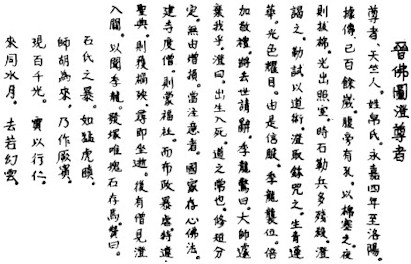 晉佛圖澄尊者
尊者。天竺人。姓帛氏。永嘉四年至洛陽。
據傳。已百餘歲。腹旁有孔。以棉塞之。夜
則拔棉。光出照室。時石勒兵多殘殺。澄
謁之。勒試以道術。澄取鉢咒之。生青蓮
華。光色耀目。由是信服。季龍襲位。倍
加敬禮。將去世請辭。季龍驚曰。大師遽
棄我乎。澄曰。出生入死。道之常也。修短分
定。無由增損。當注意者。國家存心佛法。
建寺度僧。則蒙福祉。而布政暴虐。特違
聖典。則獲禍殃。尋即坐逝。後有僧見澄
入關。以聞季龍。發塚唯塊石存焉。贊曰。
石氏之暴。如猛虎瞋。
師胡為來。乃作厥賓。
現百千光。實以行仁。
來同水月。去若幻雲。